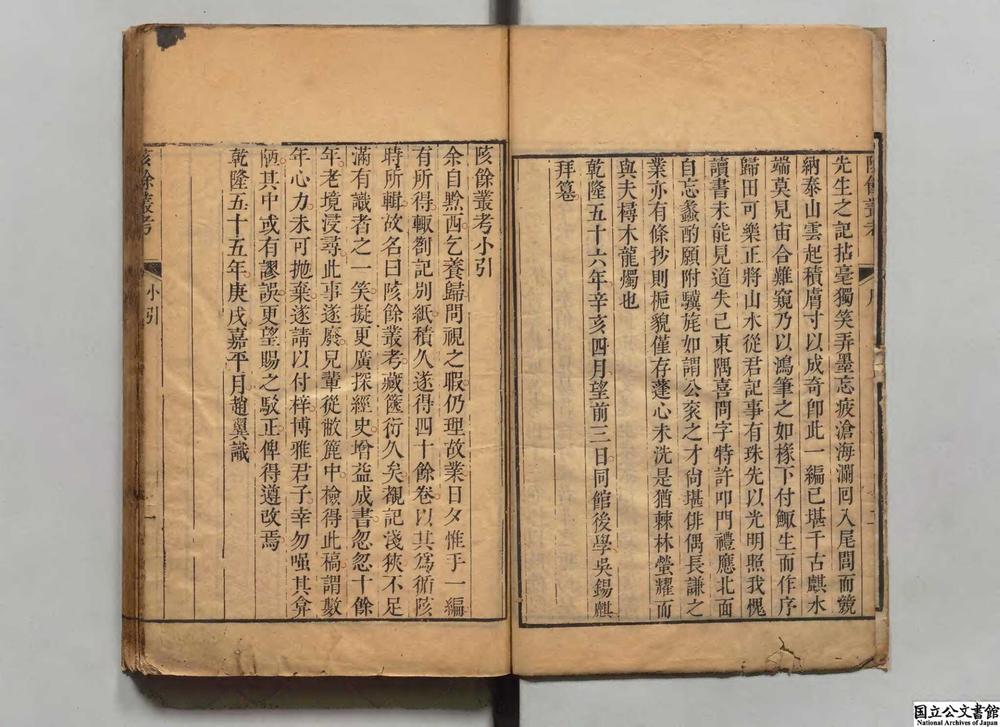 先生之記拈毫獨笑弄墨忘疲滄海瀾回入尾閭而競
納泰山雲起積膚寸以成奇卽此一編已堪千古麒木
端莫見宙合難窺乃以鴻筆之如椽下付鯫生而作序
歸田可樂正將山水從君記事有珠先以光明照我愧
讀書未能見道失已東隅喜問字特許叩門禮應北面
自忘蠡酌願附驥旄如謂公袞之才尙堪俳偶長謙之
業亦有條抄則梔貌僅存蓬心未洗是猶棘林螢耀而
與夫樳木龍燭也
乾隆五十六年辛亥四月望前三日同館後學吳錫麒
拜篹
陔餘叢考小引
余自黔西乞養歸問視之暇仍理故業日夕惟手一編
有所得輒劄記別紙積久遂得四十餘卷以其爲循陔
時所輯故名曰陔餘叢考藏篋衍久矣覩記淺狹不足
滿有識者之一笑擬更廣探經史增益成書忽忽十餘
年老境浸尋此事遂廢兒輩從敝簏中檢得此稿謂數
年心力未可拋棄遂請以付梓博雅君子幸勿嗤其弇
陋其中或有謬誤更望賜之駁正俾得遵改焉
乾隆五十五年庚戌嘉平月趙翼識
陔餘叢考
小引
一
国立公文書館
National Archives of Japan